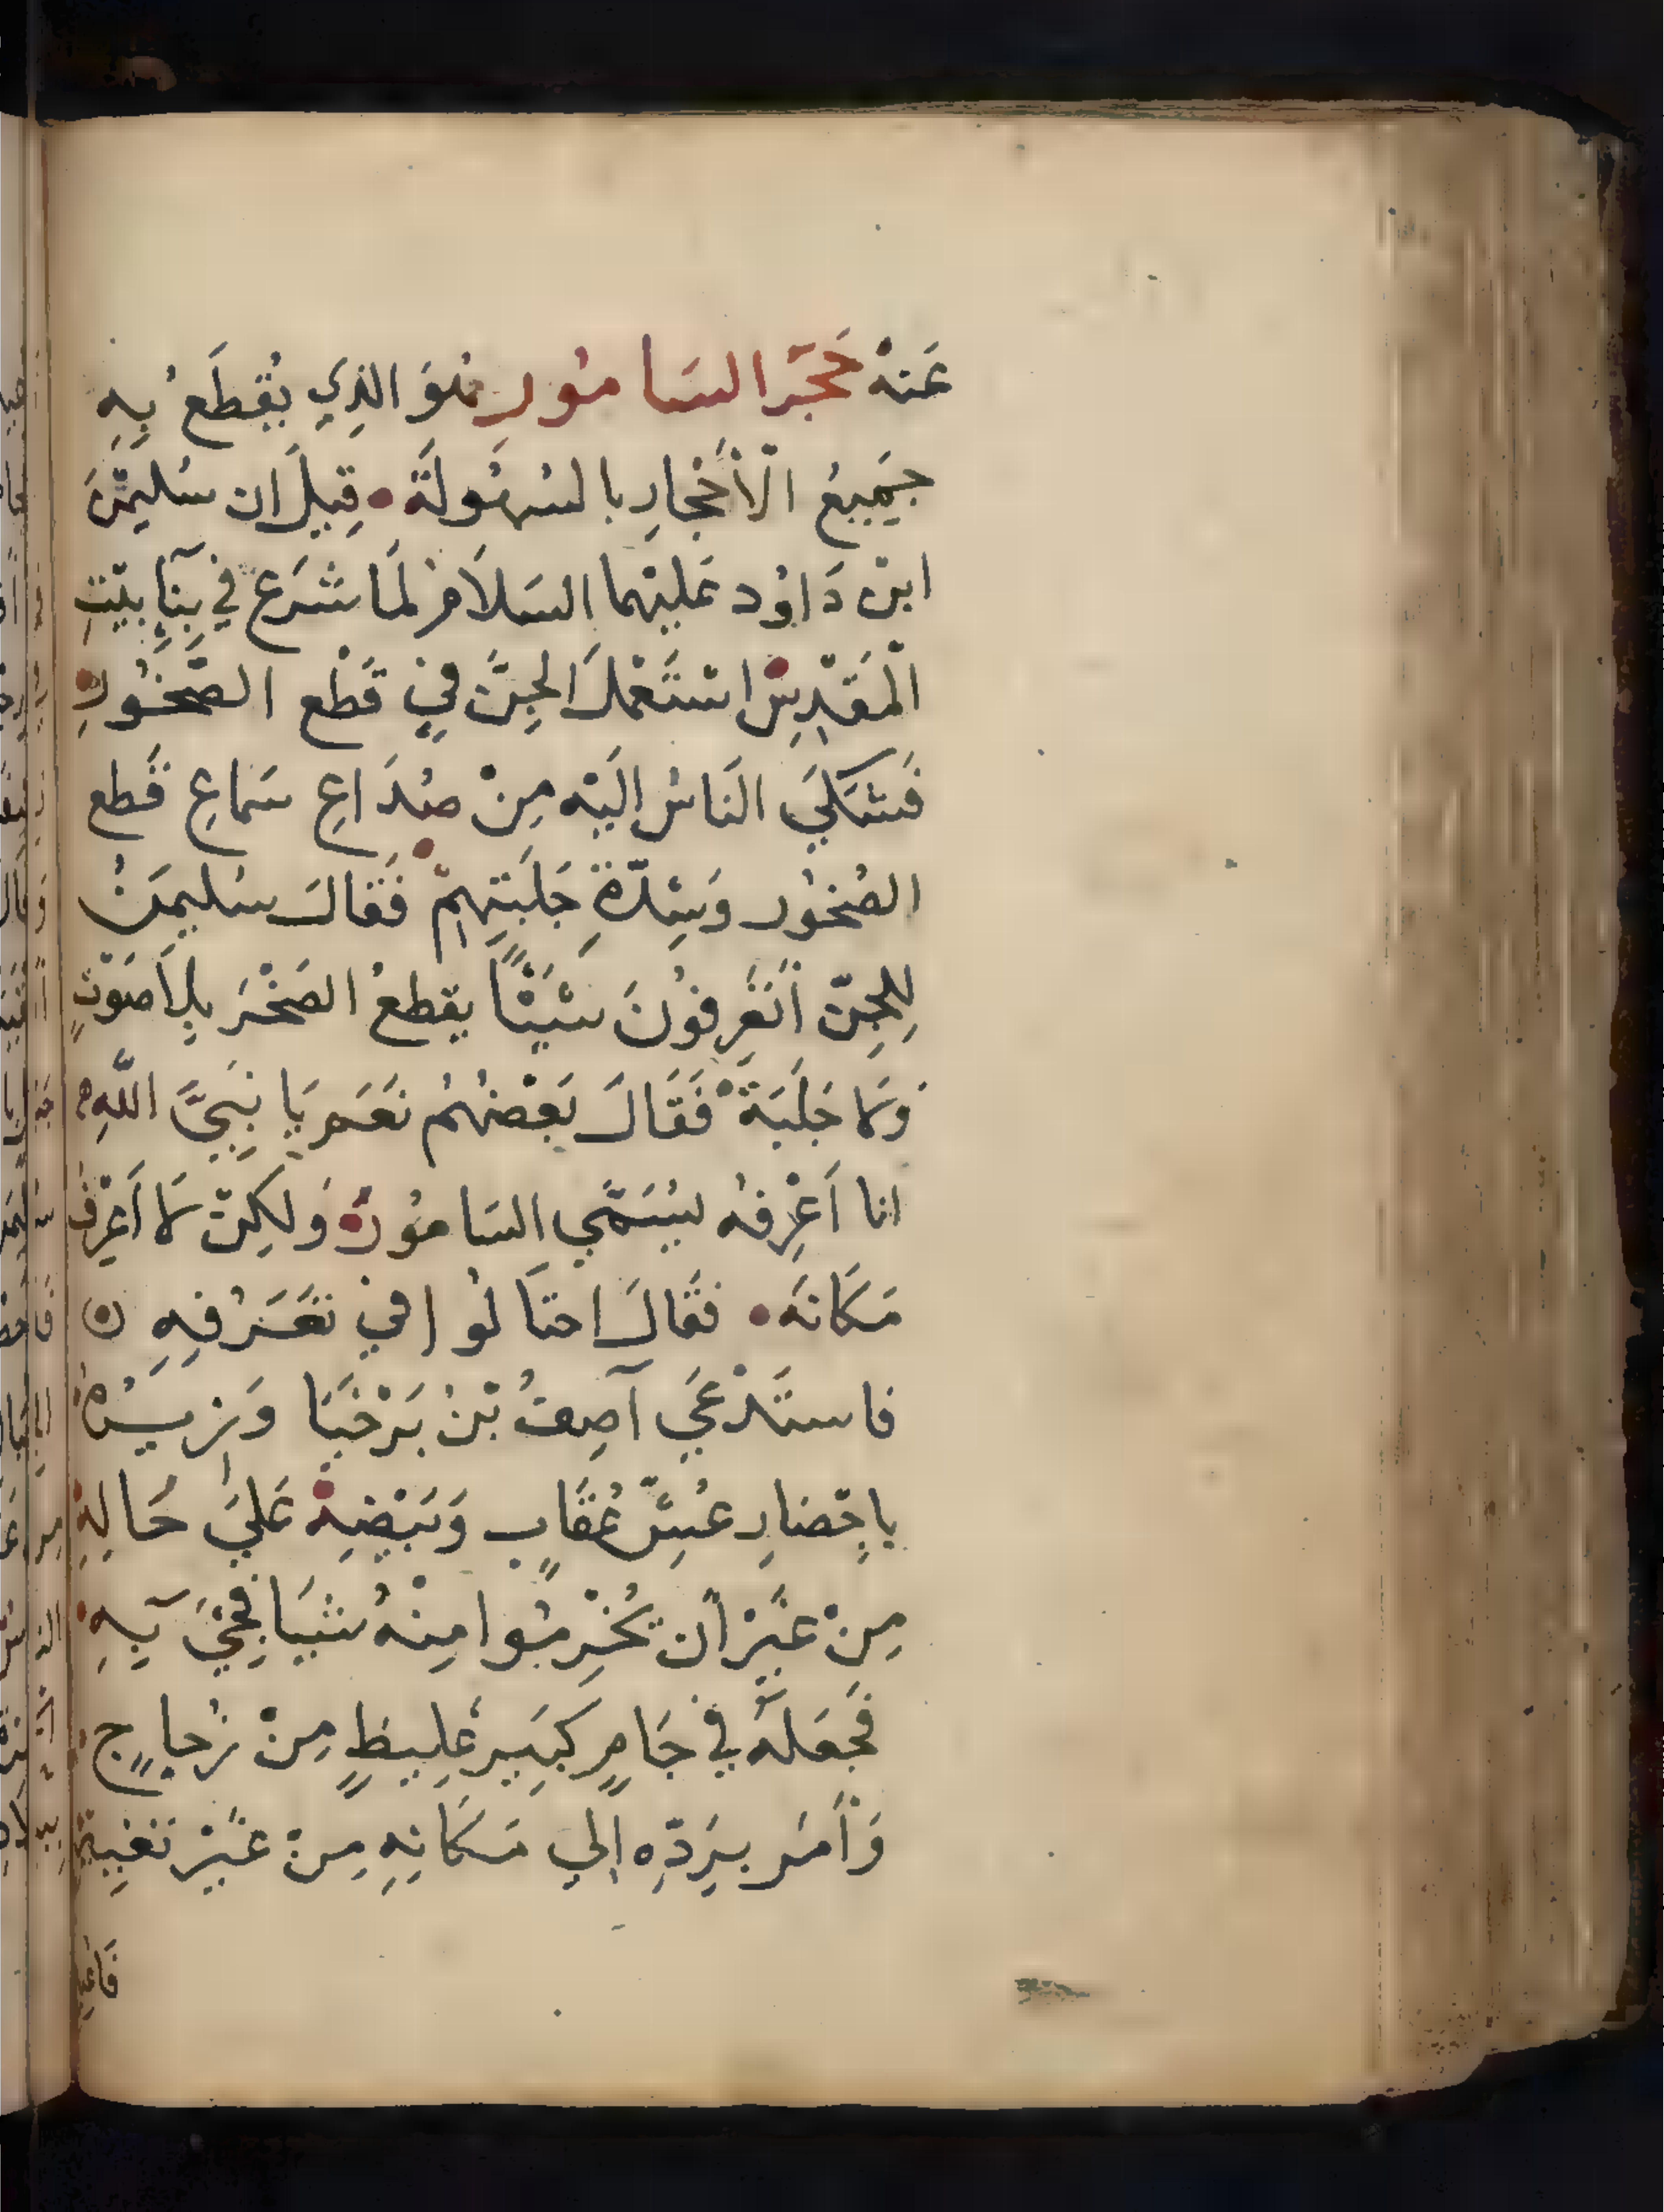 عَنهْ حَجَر السَامُورِ هُوَ الذِي يُقْطَعُ بِهِ
جَمِيعُ الْأَحْجارِ بالسُهُولَة قِيلَ ان سُليمْنَ
ابنْ دَاوُد عَليْهما السَلاَم لَمَا شَرَعَ في بِنَآءِ بَيْتِ
الْمَقدِسْ اسْتَعْمَلَ الجِنَّ فيِ قَطْعِ الصُّخُورِ
فَشَكَىَ النَاسُ إلَيْهِ مِنْ صُدَاعِ سَماعِ قَطعِ
الصُخوُر وَشِدّةِ جَلَبَتِهِمْ فَقَالَ سُليمَنُ
لِلجِنّ أتَعْرِفوُنَ شَيْئًا يقطعُ الصَخْرَ بِلاَ صَوْتٍ
وَلا جَلَبَةْ فَقَالَ بَعْضُهُم نَعَم يَا نَبِيَّ اللّهِ
انا أَعْرِفهُ يُسَمَّي السَامُور وَلكِنْ لا أَعْرِفُ
مَكَانَه فَقَالَ احتَالُوا فيْ تَعَرُفِهِ
فاستَدْعَي آصِفُ بْنُ بَرْخَيَا وَزِيرُهُ
بإحْضارِ عُشِّ عُقَابٍ وَبَيْضِهْ عَليَ حَالِهِ
مِنْ غَيْرْ أن يُخْرِبُوا مِنْهُ شَيَا فَجِيَ بِهِ
فَجَعَلَهُ في جَامٍ كَبِيرٍ غَلِيظٍ مِنْ زُجاجٍ
وَأَمَر بِرَدّهِ إلي مَكَانِهِ مِنْ غَيْر تَغْيِيْر